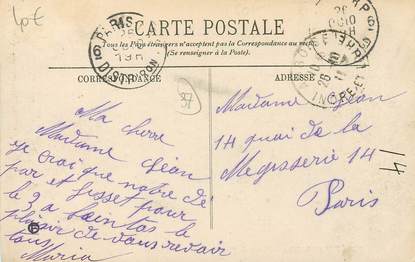 40€
CARTE POSTALE
Tous les Pays étrangers n'acceptent pas la Correspondance au recto
(Se renseigner à la Poste).
CORRESPONDANCE
ADRESSE
PARIS
DISTRIBUTION
37
Ma chere
Madame Jéan
je crai que notre dé
par et fisset pour
le 3 a bientas le
plaisir de vous revair
tous
Maria
Madame Jéan
14 quai de la
Megisserie 14
Paris
14